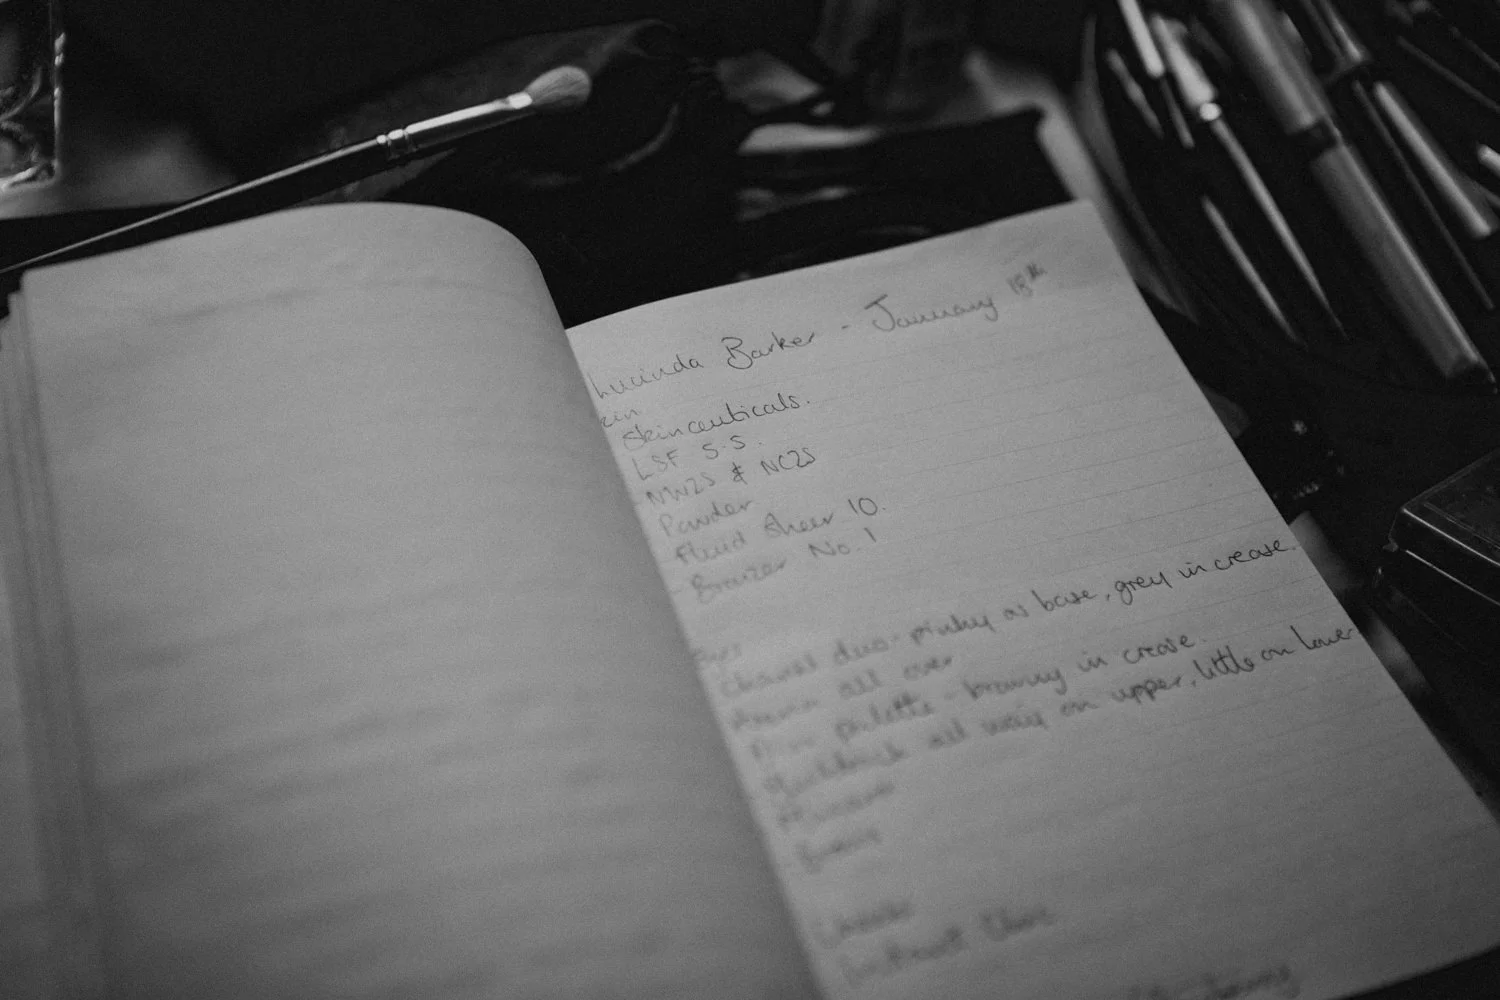 Lucinda Barker - January 18th
Skinceuticals.
LSF 5.5.
NW25 & NC25
Powder
Fluid Sheer 10.
Bronzer No. 1
Eyes
duo - pinky as base, grey in crease.
all over
palette - browny in crease.
all way on upper, little on lower.
Mascara
Brows
Cheeks